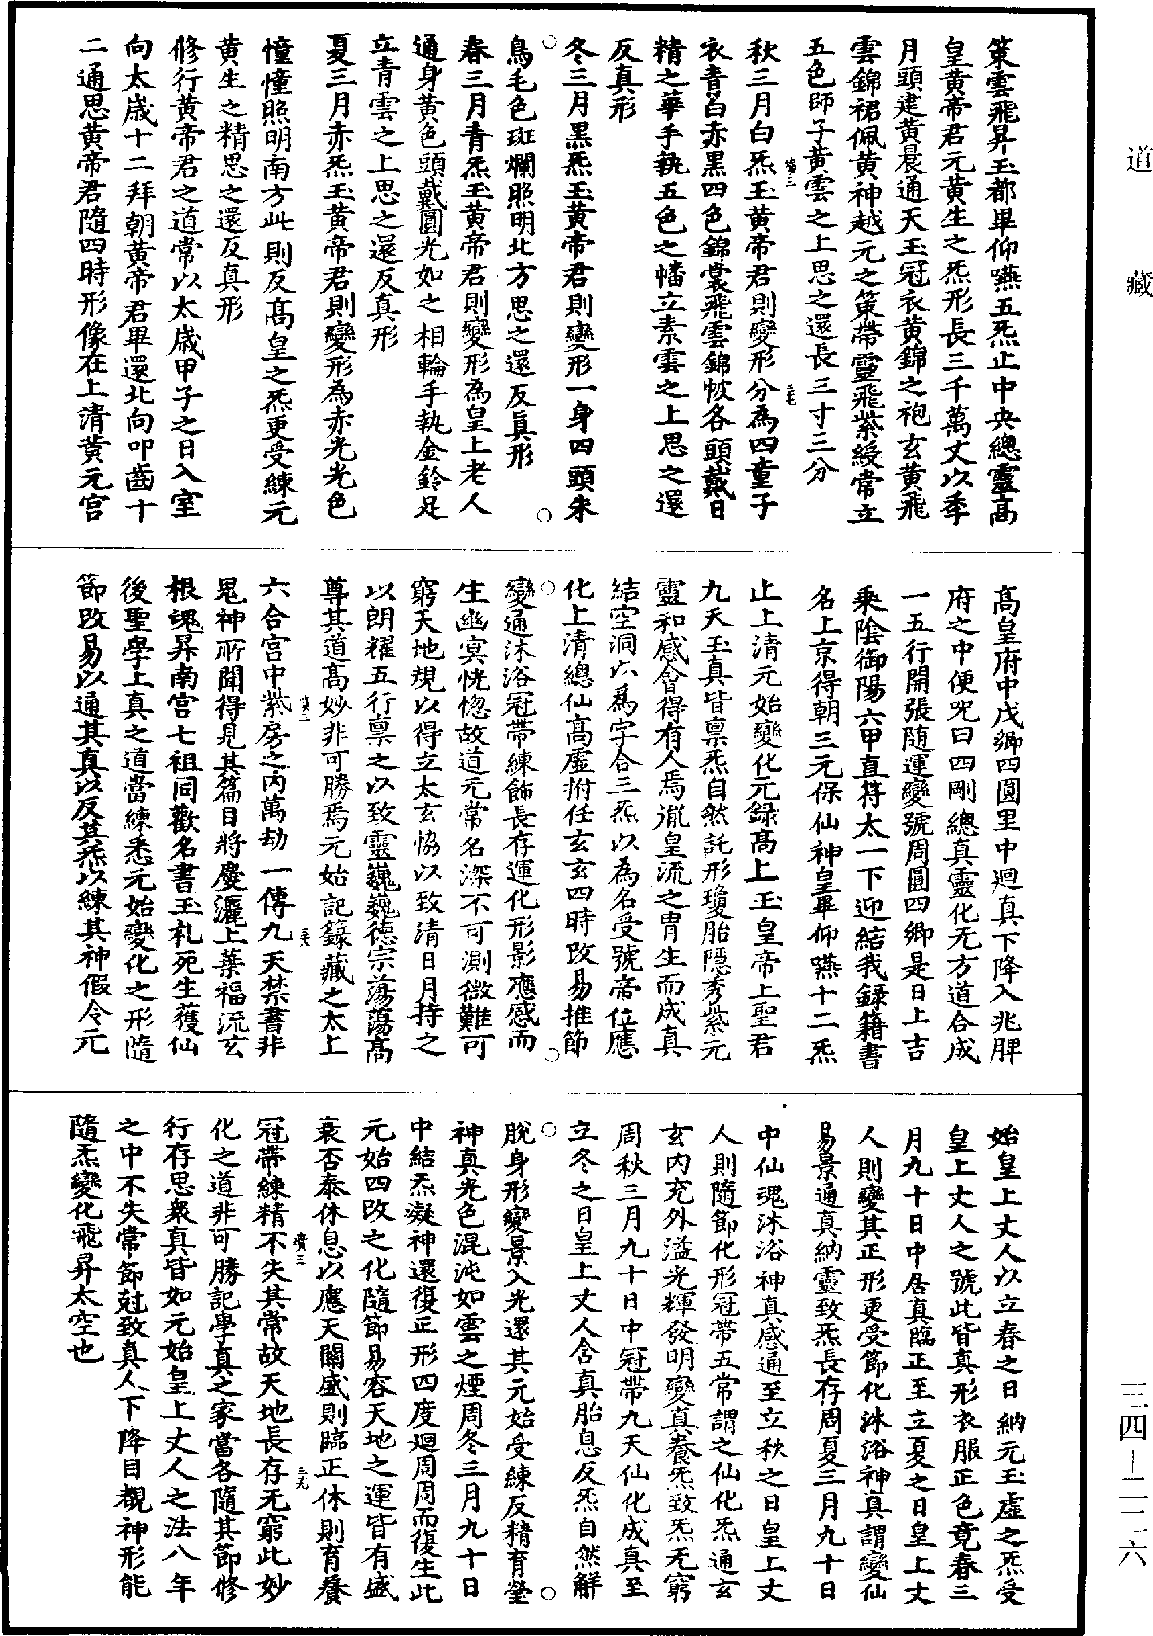 道藏
策雲飛昇玉都畢仰嚥五炁止中央總靈高
皇黃帝君元黃生之炁形長三千萬丈以季
月頭建黃晨通天玉冠衣黃錦之袍玄黃飛
雲錦裙佩黃神越元之策帶靈飛紫綬常立
五色師子黃雲之上思之還長三寸三分
秋三月白炁玉黃帝君則變形分為四童子
衣青白赤黑四色錦裳飛雲錦帔各頭戴日
精之華手執五色之幡立素雲之上思之還
反真形
冬三月黑炁玉黃帝君則變形一身四頭朱
鳥毛色斑爛照明北方思之還反真形
春三月青炁玉黃帝君則變形為皇上老人
通身黃色頭戴圓光如之相輪手執金鈴足
立青雲之上思之還反真形
夏三月赤炁玉黃帝君則變形為赤光光色
憧憧照明南方此則反高皇之炁更受練元
黃生之精思之還反真形
修行黃帝君之道常以太歲甲子之日入室
向太歲十二拜朝黃帝君畢還北向叩齒十
二通思黃帝君隨四時形像在上清黃元宮
高皇府中戊鄉四圓里中迴真下降入兆脾
府之中便呪曰四剛總真靈化无方道合成
一五行開張隨運變號周圓四鄉是日上吉
乘陰御陽六甲直符太一下迎結我錄籍書
名上京得朝三元保仙神皇畢仰嚥十二炁
止上清元始變化元録高上玉皇帝上聖君
九天玉真皆禀炁自然託形瓊胎隱秀紫元
靈和感會得有人焉胤皇流之胄生而成真
結空洞以為字合三炁以為名受號帝位應
化上清總仙高虛拊任玄玄四時改易推節
變通沐浴冠帶練飾長存運化形影應感而
生幽冥恍惚故道无常名深不可測微難可
窮天地規以得立太玄恊以致清日月持之
以朗耀五行禀之以致靈巍巍德宗蕩蕩高
尊其道高妙非可勝焉元始記錄藏之太上
六合宮中紫房之內萬劫一傳九天禁書非
鬼神所聞得見其篇目將慶灑上葉福流玄
根魂昇南宮七祖同歡名書玉札死生獲仙
後聖學上真之道當練悉元始變化之形隨
節改易以通其真以反其炁以練其神假令元
始皇上丈人以立春之日納元玉虛之炁受
皇上丈人之號此皆真形衣服正色竟春三
月九十日中居真臨正至立夏之日皇上丈
人則變其正形更受節化沐浴神真謂變仙
易景通真納靈致炁長存周夏三月九十日
中仙魂沐浴神真感通至立秋之日皇上丈
人則隨節化形冠帶五常謂之仙化炁通玄
玄內充外溢光輝發明變真養炁致炁无窮
周秋三月九十日中冠帶九天仙化成真至
立冬之日皇上丈人含真胎息反炁自然解
脫身形變景入光還其元始受練反精育瑩
神真光色混沌如雲之煙周冬三月九十日
中結炁凝神還復正形四度迴周周而復生此
元始四改之化隨節易容天地之運皆有盛
衰否泰休息以應天關盛則臨正休則育養
冠帶練精不失其常故天地長存无窮此妙
化之道非可勝記學真之家當各隨其節修
行存思衆真皆如元始皇上丈人之法八年
之中不失常節尅致真人下降目覩神形能
隨炁變化飛昇太空也
三四-二一六